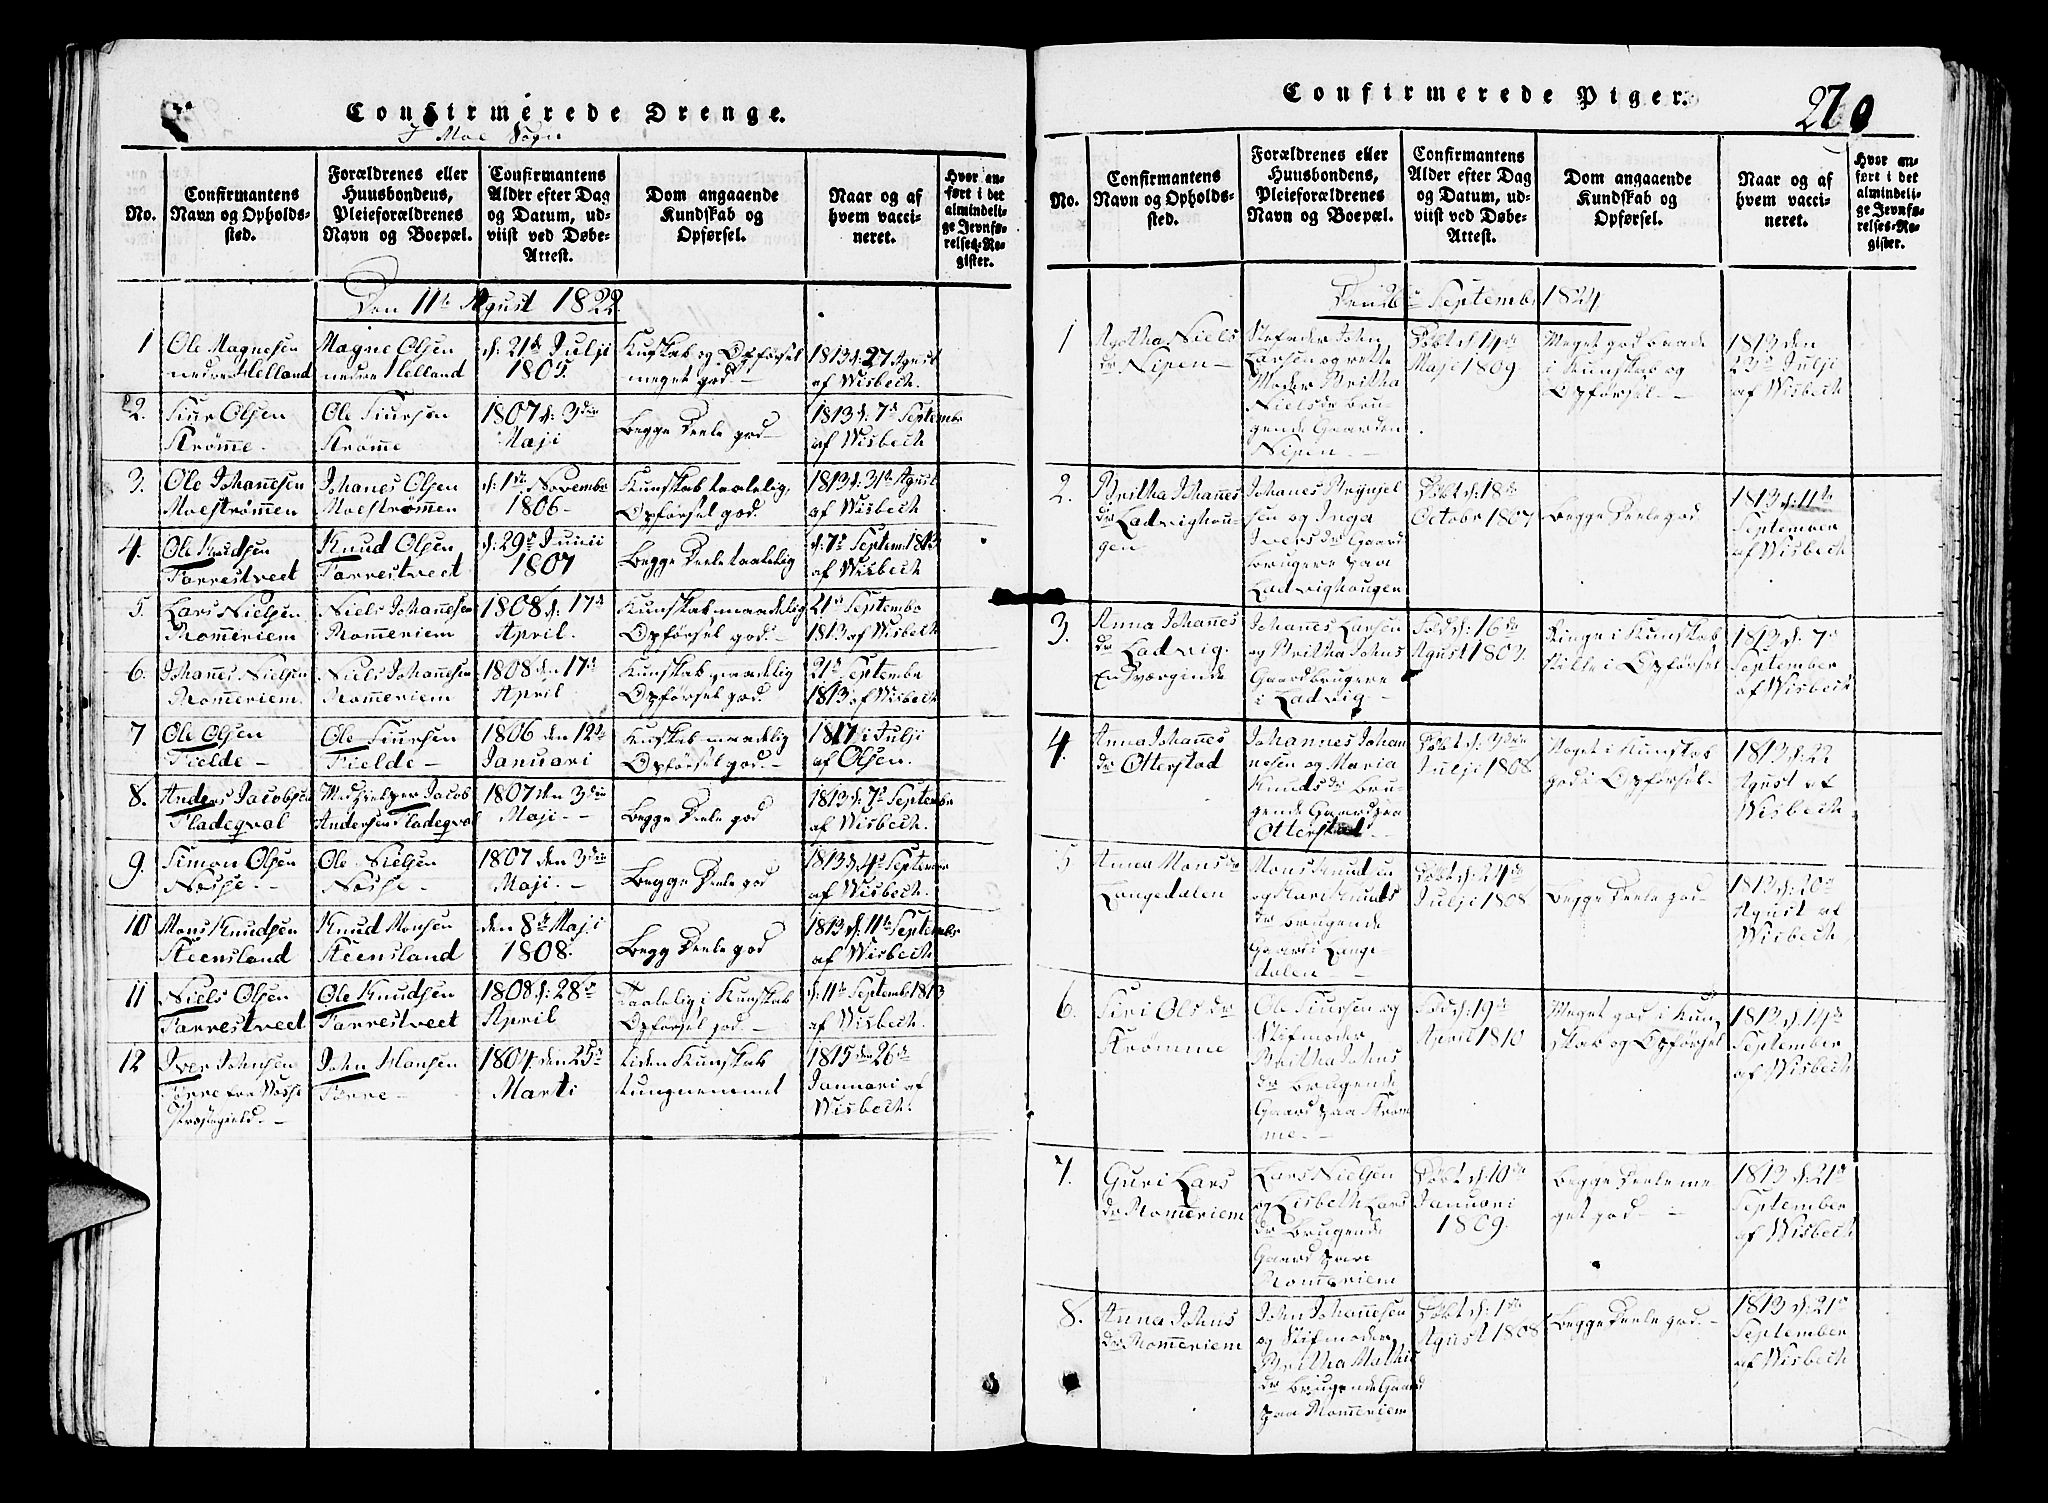 Confirmerede Drenge.
I Moe Sogn
No.
Confirmantens
Navn og Opholds-
sted.
Forældrenes eller
Huusbondens,
Pleieforældrenes
Navn og Boepæl.
Confirmantens
Alder efter Dag
og Datum, ud-
viist ved Døbe-
Attest.
Dom angaaende
Kundskab og
Opførsel.
Naar og af
hvem vacci-
neret.
Hvor an-
ført i det
almindeli-
ge Jevnfø-
relses-Re-
gister.
Den 11te Agust 1822
1
Ole Magnesen
nedre Helland
Magne Olsen
nedre Helland
d: 21de Julji
1805.
Kuskab og Opførsel
meget god.-
1813 d: 27 Agust
af Wisbech.
2.
Siur Olsen
Strømme.
Ole Siursen
Strømme
1807 d: 3die
Maji
Begge Deele god
1813 d: 7de Septembr
af Wisbech
3.
Ole Johanesen
Moestrømen
Johanes Olsen
Moestrømen
d: 1ste Novembr
1806.
Kunskab taalelig,
Opførsel god.
1813 d: 31te Agust
af Wisbech
4.
Ole Knudsen
Farrestveet
Knud Olsen
Farrestveet
d: 29de Junii
1807
Begge Deele taalelig
d: 7de Septem: 1813
af Wisbech
5.
Lars Nielsen
Romeriem
Niels Johanesen
Romeriem
1808 d: 17de
April.
Kunskab maadelig
Opførsel god.-
21de Septembr
1813 af Wisbech
6.
Johanes Nielsen
Romeriem
Niels Johanesen
Romeriem
1808 den 17de
April
Kunskab maadelig
Opførsel god.
21de Septembr
1813 af Wisbech
7
Ole Olsen
Fielde-
Ole Siursen
Fielde-
1806 den 12te
Januari
Kunskab maadelig
Opførsel god.-
1817 i Julji
af Olsen.
8.
Anders Jacobsen
Fladeqval
Medhielper Jacob
Andersen Fladeqval
1807 den 3die
Maji.-
Begge Deele god
1813 d: 7de Septembr
af Wisbech.
9.
Simon Olsen
Nesse.-
Ole Nielsen
Nesse.-
1807 den 3die
Maji.-
Begge Deele god
1813 d: 4de September
af Wisbech.
10
Mons Knudsen
Steensland
Knud Monsen
Steensland
den 8de Maji
1808.
Begg Deele god
1813 d: 11te Septembr
af Wisbech
11
Niels Olsen
Farrestveet
Ole Knudsen
Farrestveet
1808 d: 28de
April
Taalelig i Kunskab
Opførsel god.-
d: 11te Septembr 1813
af Wisbech.
12
Iver Johnsen
Førre fra Wosse
Præstegield.-
John Hansen
Førre-
1804 den 25de
Marti
Liden Kunskab
tungnemmet
1815 den 26de
Januari af
Wisbech.
Confirmerede Piger.
270
No.
Confirmantens
Navn og Opholds-
sted.
Forældrenes eller
Huusbondens,
Pleieforældrenes
Navn og Boepæl.
Confirmantens
Alder efter Dag
og Datum, ud-
viist ved Døbe-
Attest.
Dom angaaende
Kundskab og
Opførsel.
Naar og af
hvem vacci-
neret.
Hvor an-
ført i det
almindeli-
ge Jevnfø-
relses-Re-
gister.
September 1824
1
Agatha Niels
dr Nipen-
Stefader John
Larsen og rette
Moder Britha
Nielsdr bru-
gende Gaarden
Nipen.-
Døbt d: 14de
Maji 1809
Meget god baade
i Kunskab og
Opførsel.-
1813 den
23de Julji
af Wisbech
2.
Britha Johanes
dr Ladvighou-
gen
Johanes Brynjel
sen og Inga
Iversdr Gaard
brugere paa
Ladvighougen
Døbt d: 18de
Octobr 1807
Begge Deele god
1813 d: 11te
September
af Wisbech
3.
Anna Johanes
dr Ladvig.
Johanes Larsen
og Britha Johns
Gaardbrugere
i Ladvig-
Fød d: 16de
Agust 1803.
Ringe i Kunskab
stille i Opførsel
1813 d: 7de
September
af Wisbech
4.
Anna Johanes
dr Otterstad
Johannes Johan
nesen og Maria
Knudsdr bru-
gende Gaard paa
Otterstad-
Døbt d: 3die
Julji 1808
Noget i Kunskab
god i Opførsel.
1813 d: 22
Agust af
Wisbech
5
Anna Monsdr
Langedalen
Mons Knudsen
og Mari Knuds
dr brugende
Gaard i Lange-
dalen-
Døbt d: 24de
Julji 1808
Begge Deele god-
1813 d: 20de
Agust af
Wisbech
6.
Siri Olsdr
Strømme
Ole Siursen og
Stifmoder
Britha Johns
dr brugende
Gaard paa Strøm
me.-
Fød d: 19de
April 1810
Meget god i Kun
skab og Opførsel
1813 d: 14de
September
af Wisbech
7.
Guri Lars
dr Romeriem
Lars Nielsen
og Lisbeth Lars
dr brugende
Gaard paa
Romeriem
Døbt d: 10de
Januari
1809.
Begge Deele me-
get god-
1813 d: 21de
September
af Wisbech
8.
Anna Johns
dr Romeriem
John Johanesen
og Stifmoder
Britha Mathis
dr brugende Gaard
paa Romeriem
Døbt d: 1ste
Agust 1808
Begge Deele god.-
1813 d: 21de
September
af Wisbech